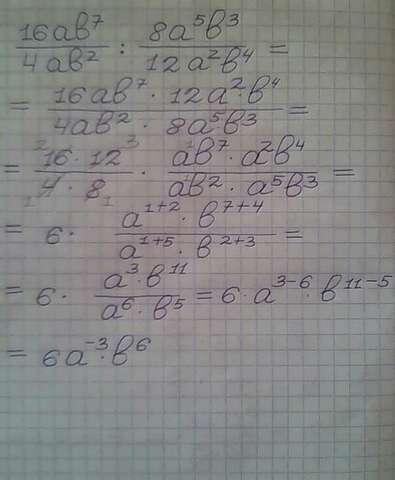 16ab⁷/4ab² : 8a⁵b³/12a²b⁴ =
= 16ab⁷ · 12a² · b⁴/4ab² · 8a⁵b³ =
= 16 · 12/4 · 8 · ab⁷ · a²b⁴/ab² · a⁵b³ =
= 6 · a¹⁺² · b⁷⁺⁴/a¹⁺⁵ · b²⁺³ =
= 6 · a³ · b¹¹/a⁶ · b⁵ = 6 · a³⁻⁶ · b¹¹⁻⁵
= 6a⁻³ · b⁶